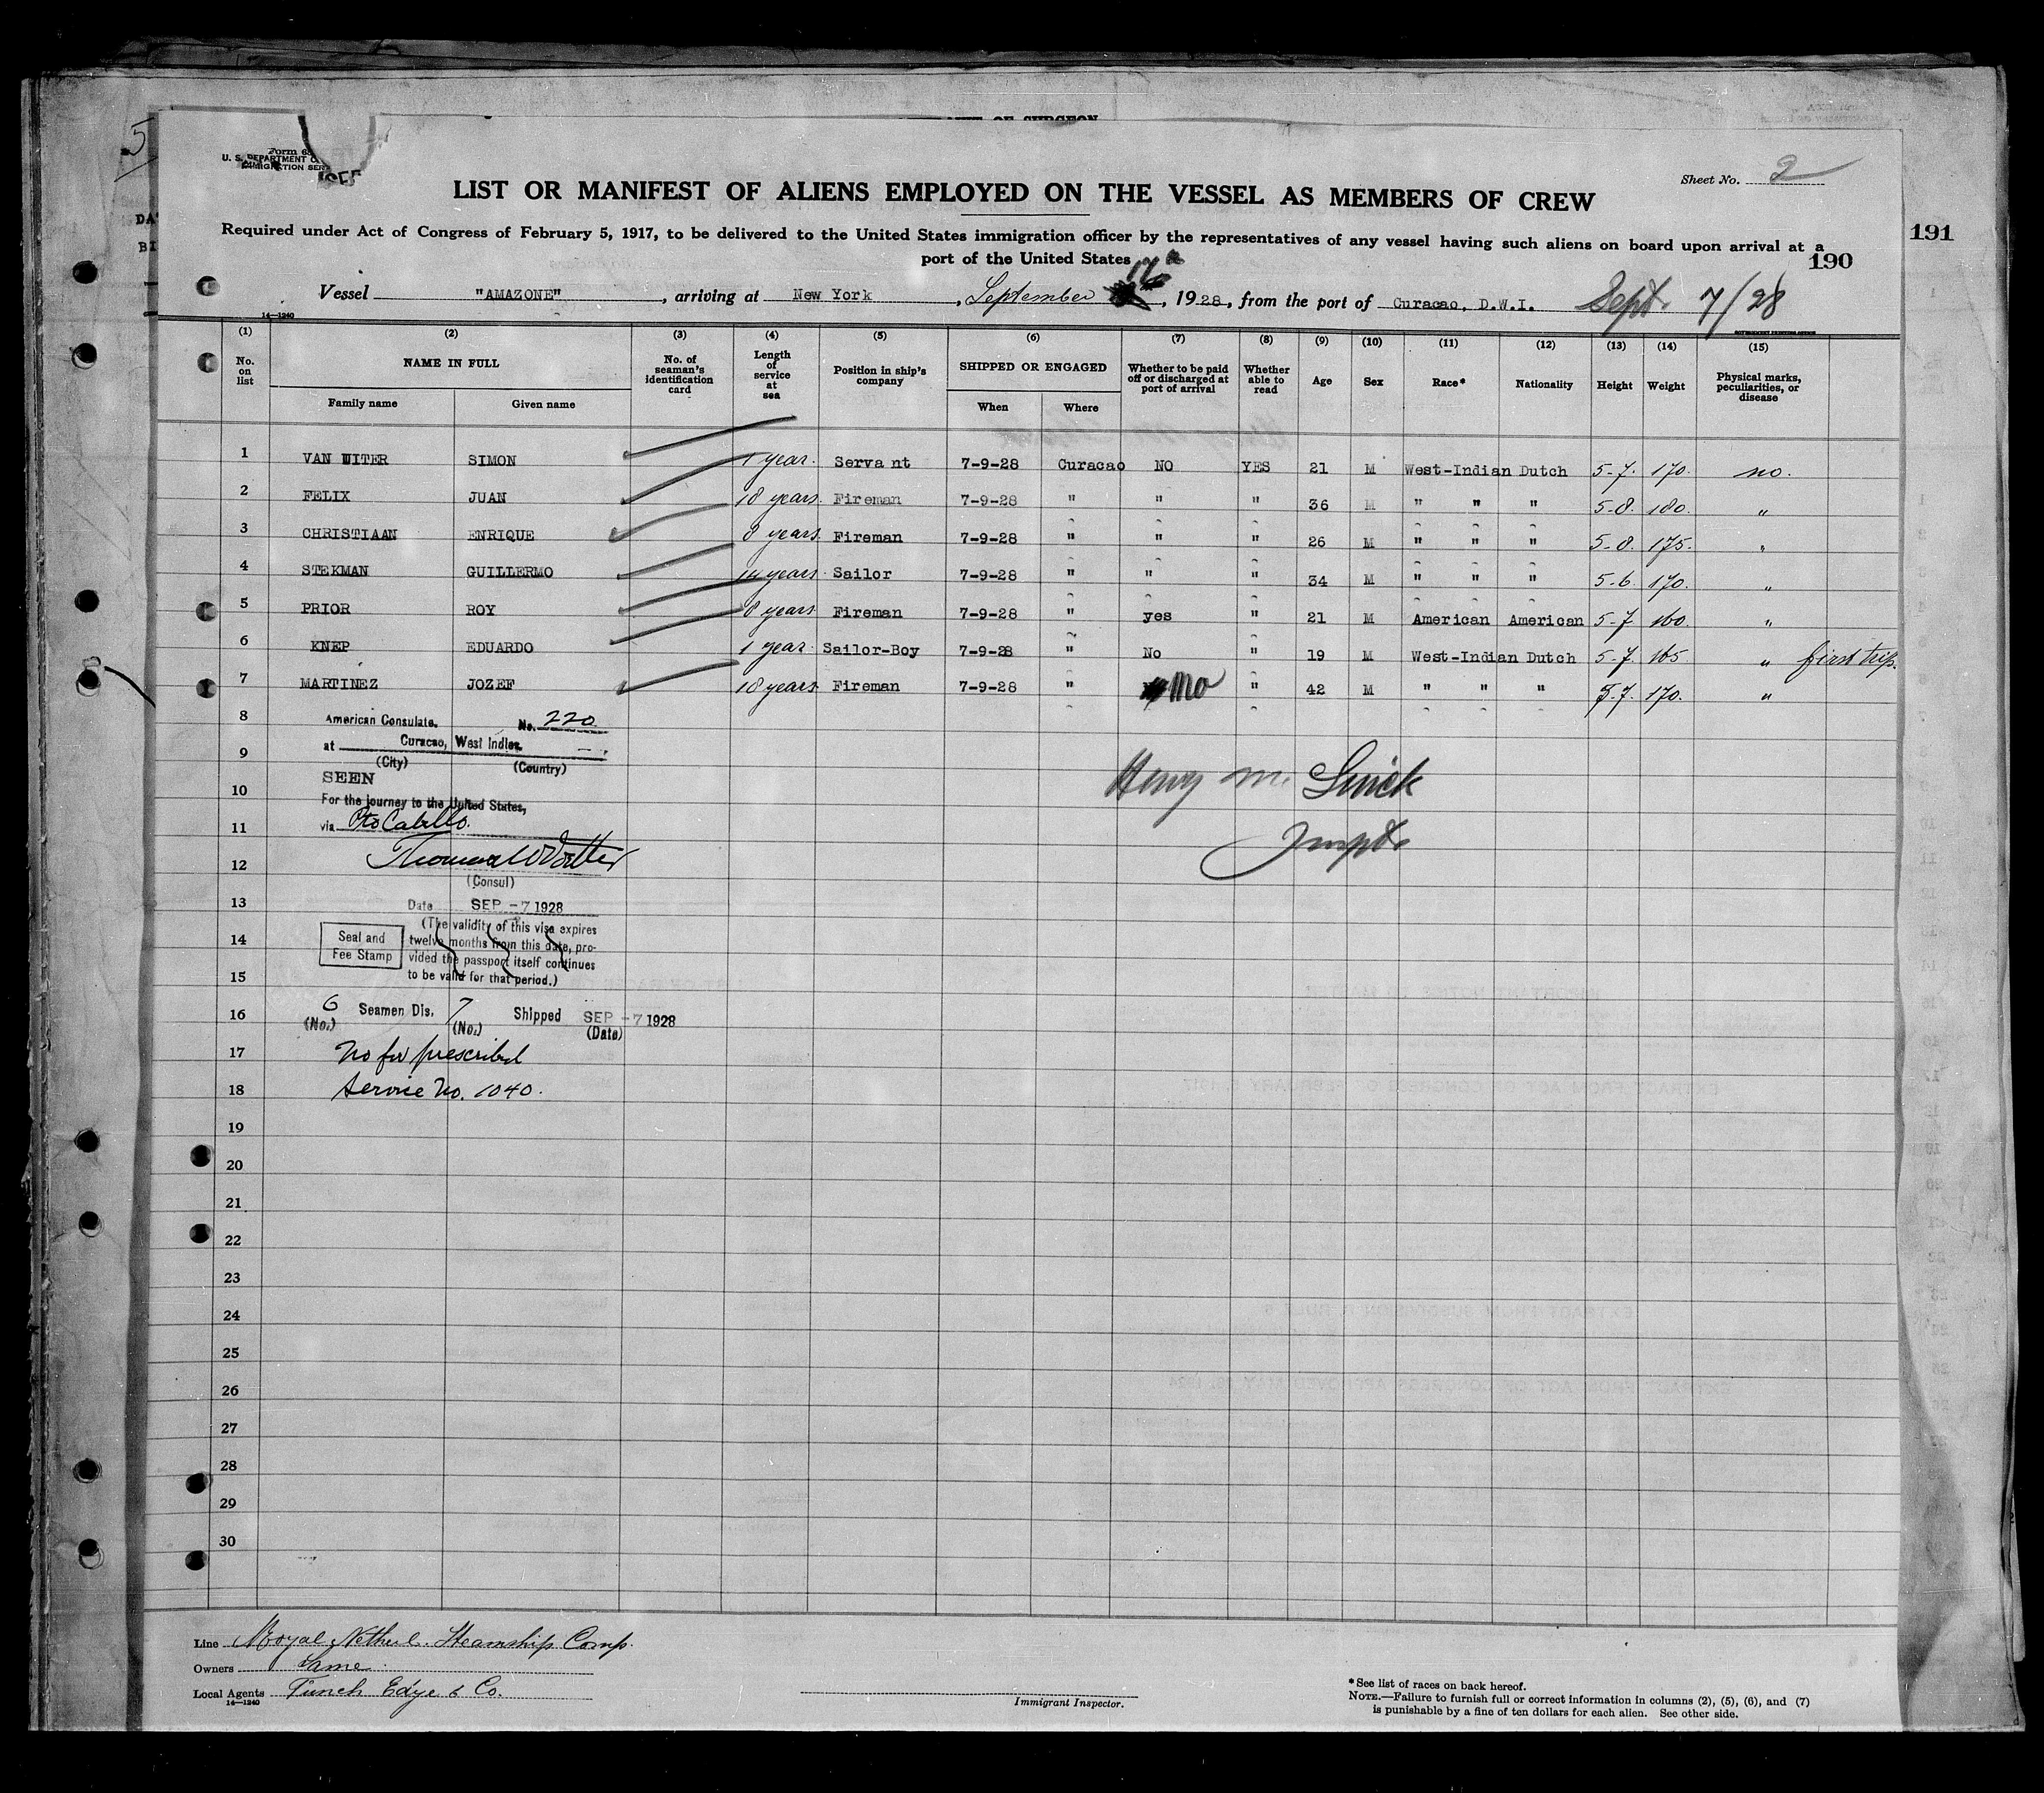 Form 68
U. S. DEPARTMENT O
IMMIGRATION SER
Sheet No. 2
LIST OR MANIFEST OF ALIENS EMPLOYED ON THE VESSEL AS MEMBERS OF CREW
Required under Act of Congress of February 5, 1917, to be delivered to the United States immigration officer by the representatives of any vessel having such aliens on board upon arrival at a
port of the United States
191
190
Vessel "AMAZONE", arriving at New York, September 16, 1928, from the port of Curacao, D.W.I. Sept. 7/28
14—1240
(1) (2) (3) (4) (5) (6) (7) (8) (9) (10) (11) (12) (13) (14) (15)
No. on list NAME IN FULL No. of seaman's identification card Length of service at sea Position in ship's company SHIPPED OR ENGAGED Whether to be paid off or discharged at port of arrival Whether able to read Age Sex Race* Nationality Height Weight Physical marks, peculiarities, or disease
Family name Given name When Where
1 VAN UITER SIMON 1 year. Servant 7-9-28 Curacao NO YES 21 M West-Indian Dutch 5-7. 170. no.
2 FELIX JUAN 18 years. Fireman 7-9-28 " " " 36 M " " " 5-8. 180. "
3 CHRISTIAAN ENRIQUE 8 years. Fireman 7-9-28 " " " 26 M " " " 5-8. 175. "
4 STEKMAN GUILLERMO 14 years. Sailor 7-9-28 " " " 34 M " " " 5-6. 170. "
5 PRIOR ROY 8 years. Fireman 7-9-28 " yes " 21 M American American 5-7 160. "
6 KNEP EDUARDO 1 year. Sailor-Boy 7-9-28 " No " 19 M West-Indian Dutch 5-7. 165. " first trip.
7 MARTINEZ JOZEF 18 years Fireman 7-9-28 " No " 42 M " " " 5-7. 170. "
8 American Consulate. No. 220
at Curacao, West Indies.
9 (City) (Country)
SEEN
10 For the journey to the United States,
11 via Pto Cabello.
12
(Consul)
Henry M.
Inspt.
13 Date SEP -7 1928
(The validity of this visa expires
14 twelve months from this date, pro-
vided the passport itself continues
15 to be valid for that period.)
Seal and
Fee Stamp
16 6 Seamen Dis. 7 Shipped SEP -7 1928
(No.) (No.) (Date)
17 No fee prescribed
18 Service No. 1040.
19
20
21
22
23
24
25
26
27
28
29
30
Line Royal Netherl. Steamship Comp.
Owners Same
Local Agents Funch Edye & Co.
14—1240
Immigrant Inspector.
*See list of races on back hereof.
NOTE.—Failure to furnish full or correct information in columns (2), (5), (6), and (7)
is punishable by a fine of ten dollars for each alien. See other side.